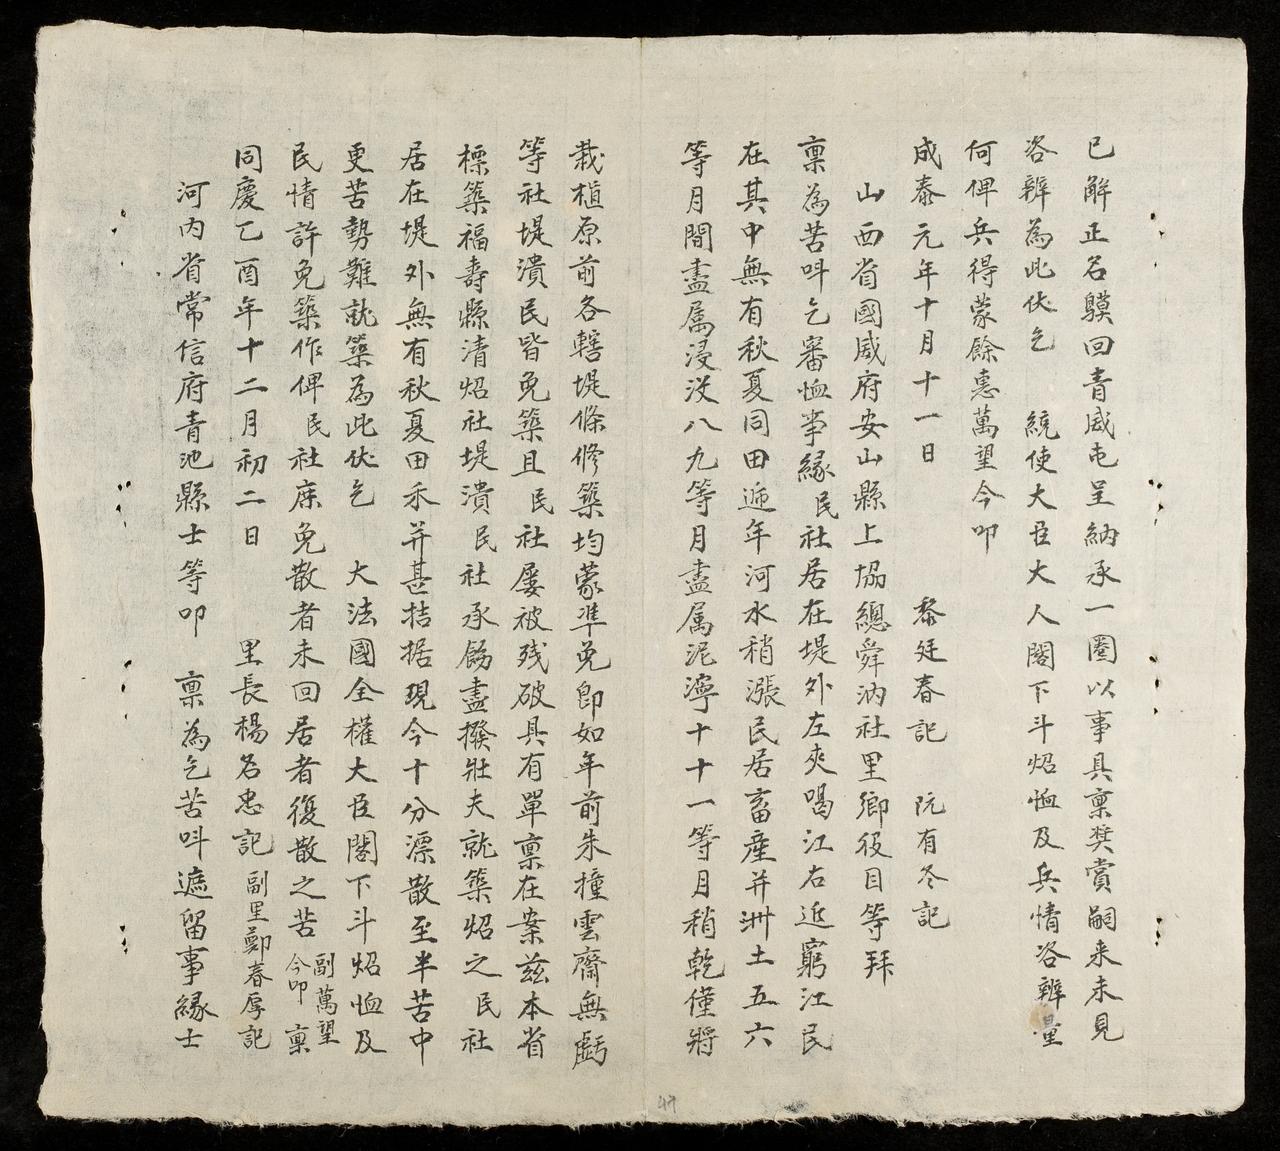 已解正名䫉回青威屯呈納承一圈以事具稟奬賞嗣来未見
咨辨為此伏乞　統使大臣大人閣下斗炤恤及兵情咨辨量
何俾兵得蒙餘惠萬望今叩
成泰元年十月十一日　黎廷春記　阮有冬記
山西省國威府安山縣上協總舜汭社里鄉役目等拜
稟為苦呌乞審恤事緣民社居在堤外左夾喝江右近窮江民
在其中無有秋夏同田遞年河水稍漲民居畜產并洲土五六
等月間盡属浸没八九等月盡属泥濘十十一等月稍乾僅將
栽植原前各轄堤條修築均蒙準免即如年前朱撞雲齋無虧
等社堤潰民皆免築且民社屢被残破具有單稟在案兹本省
標築福壽縣清炤社堤潰民社承飭盡撥壯夫就築炤之民社
居在堤外無有秋夏田禾并甚拮据現今十分漂散至半苦中
更苦勢難就築為此伏乞　大法國全權大臣閣下斗炤恤及
民情許免築作俾民社庶免散者未回居者復散之苦副萬望今叩稟
同慶乙酉年十二月初二日　里長楊名忠記　副里鄭春厚記
河内省常信府青池縣士等叩　稟為乞苦呌遮留事緣士
47